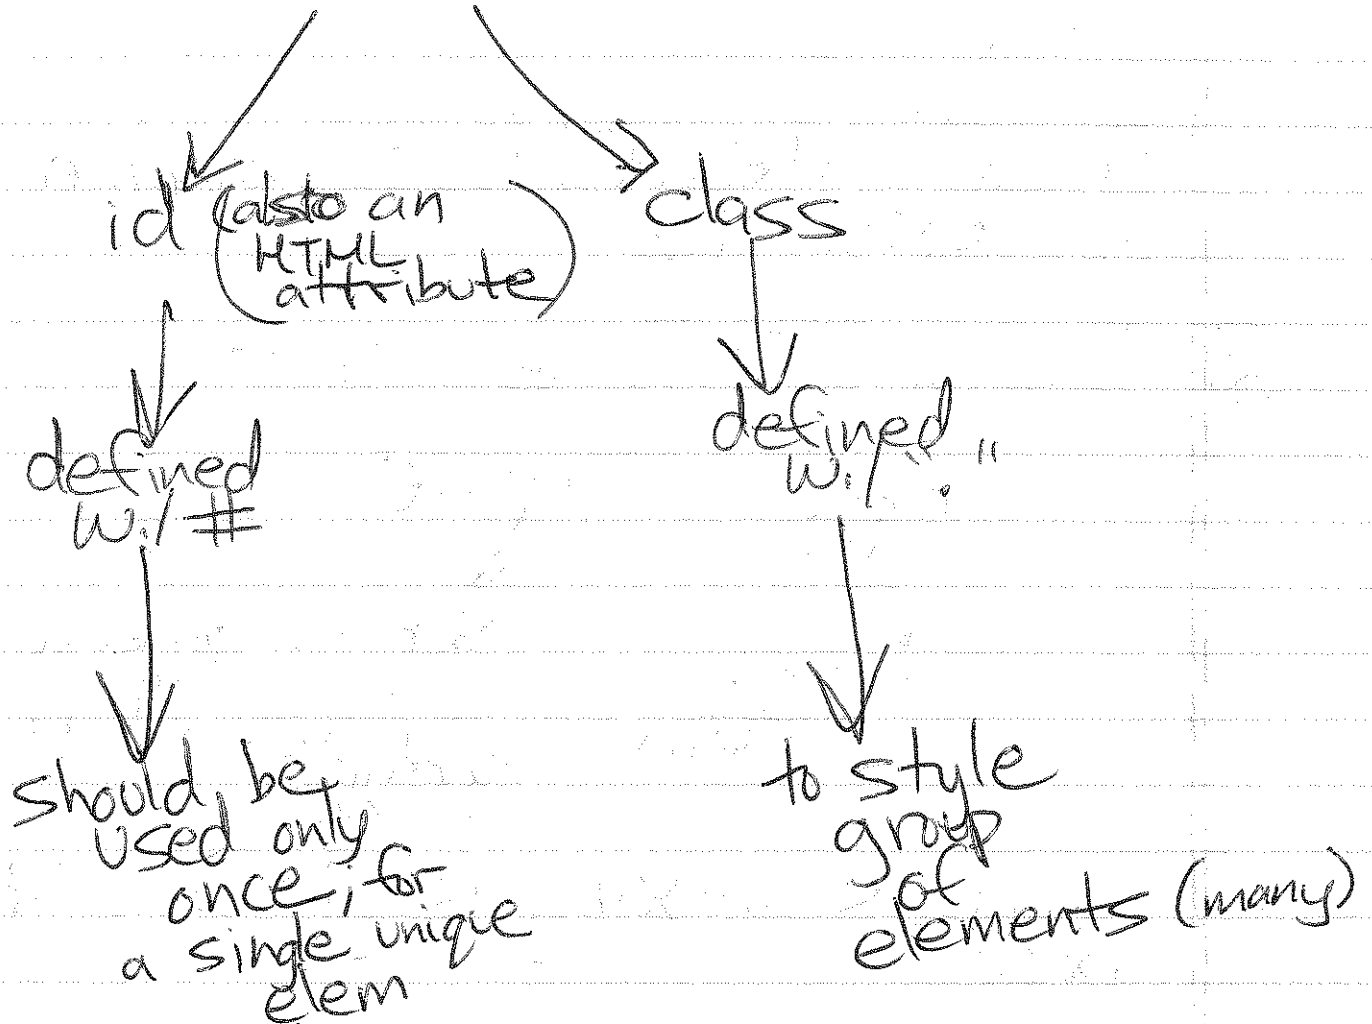 id (also an
HTML
attribute)
defined
w./ #
should be
used only
once, for
a single unique
elem
class
defined
w./ "."
to style
group
of
elements (many)